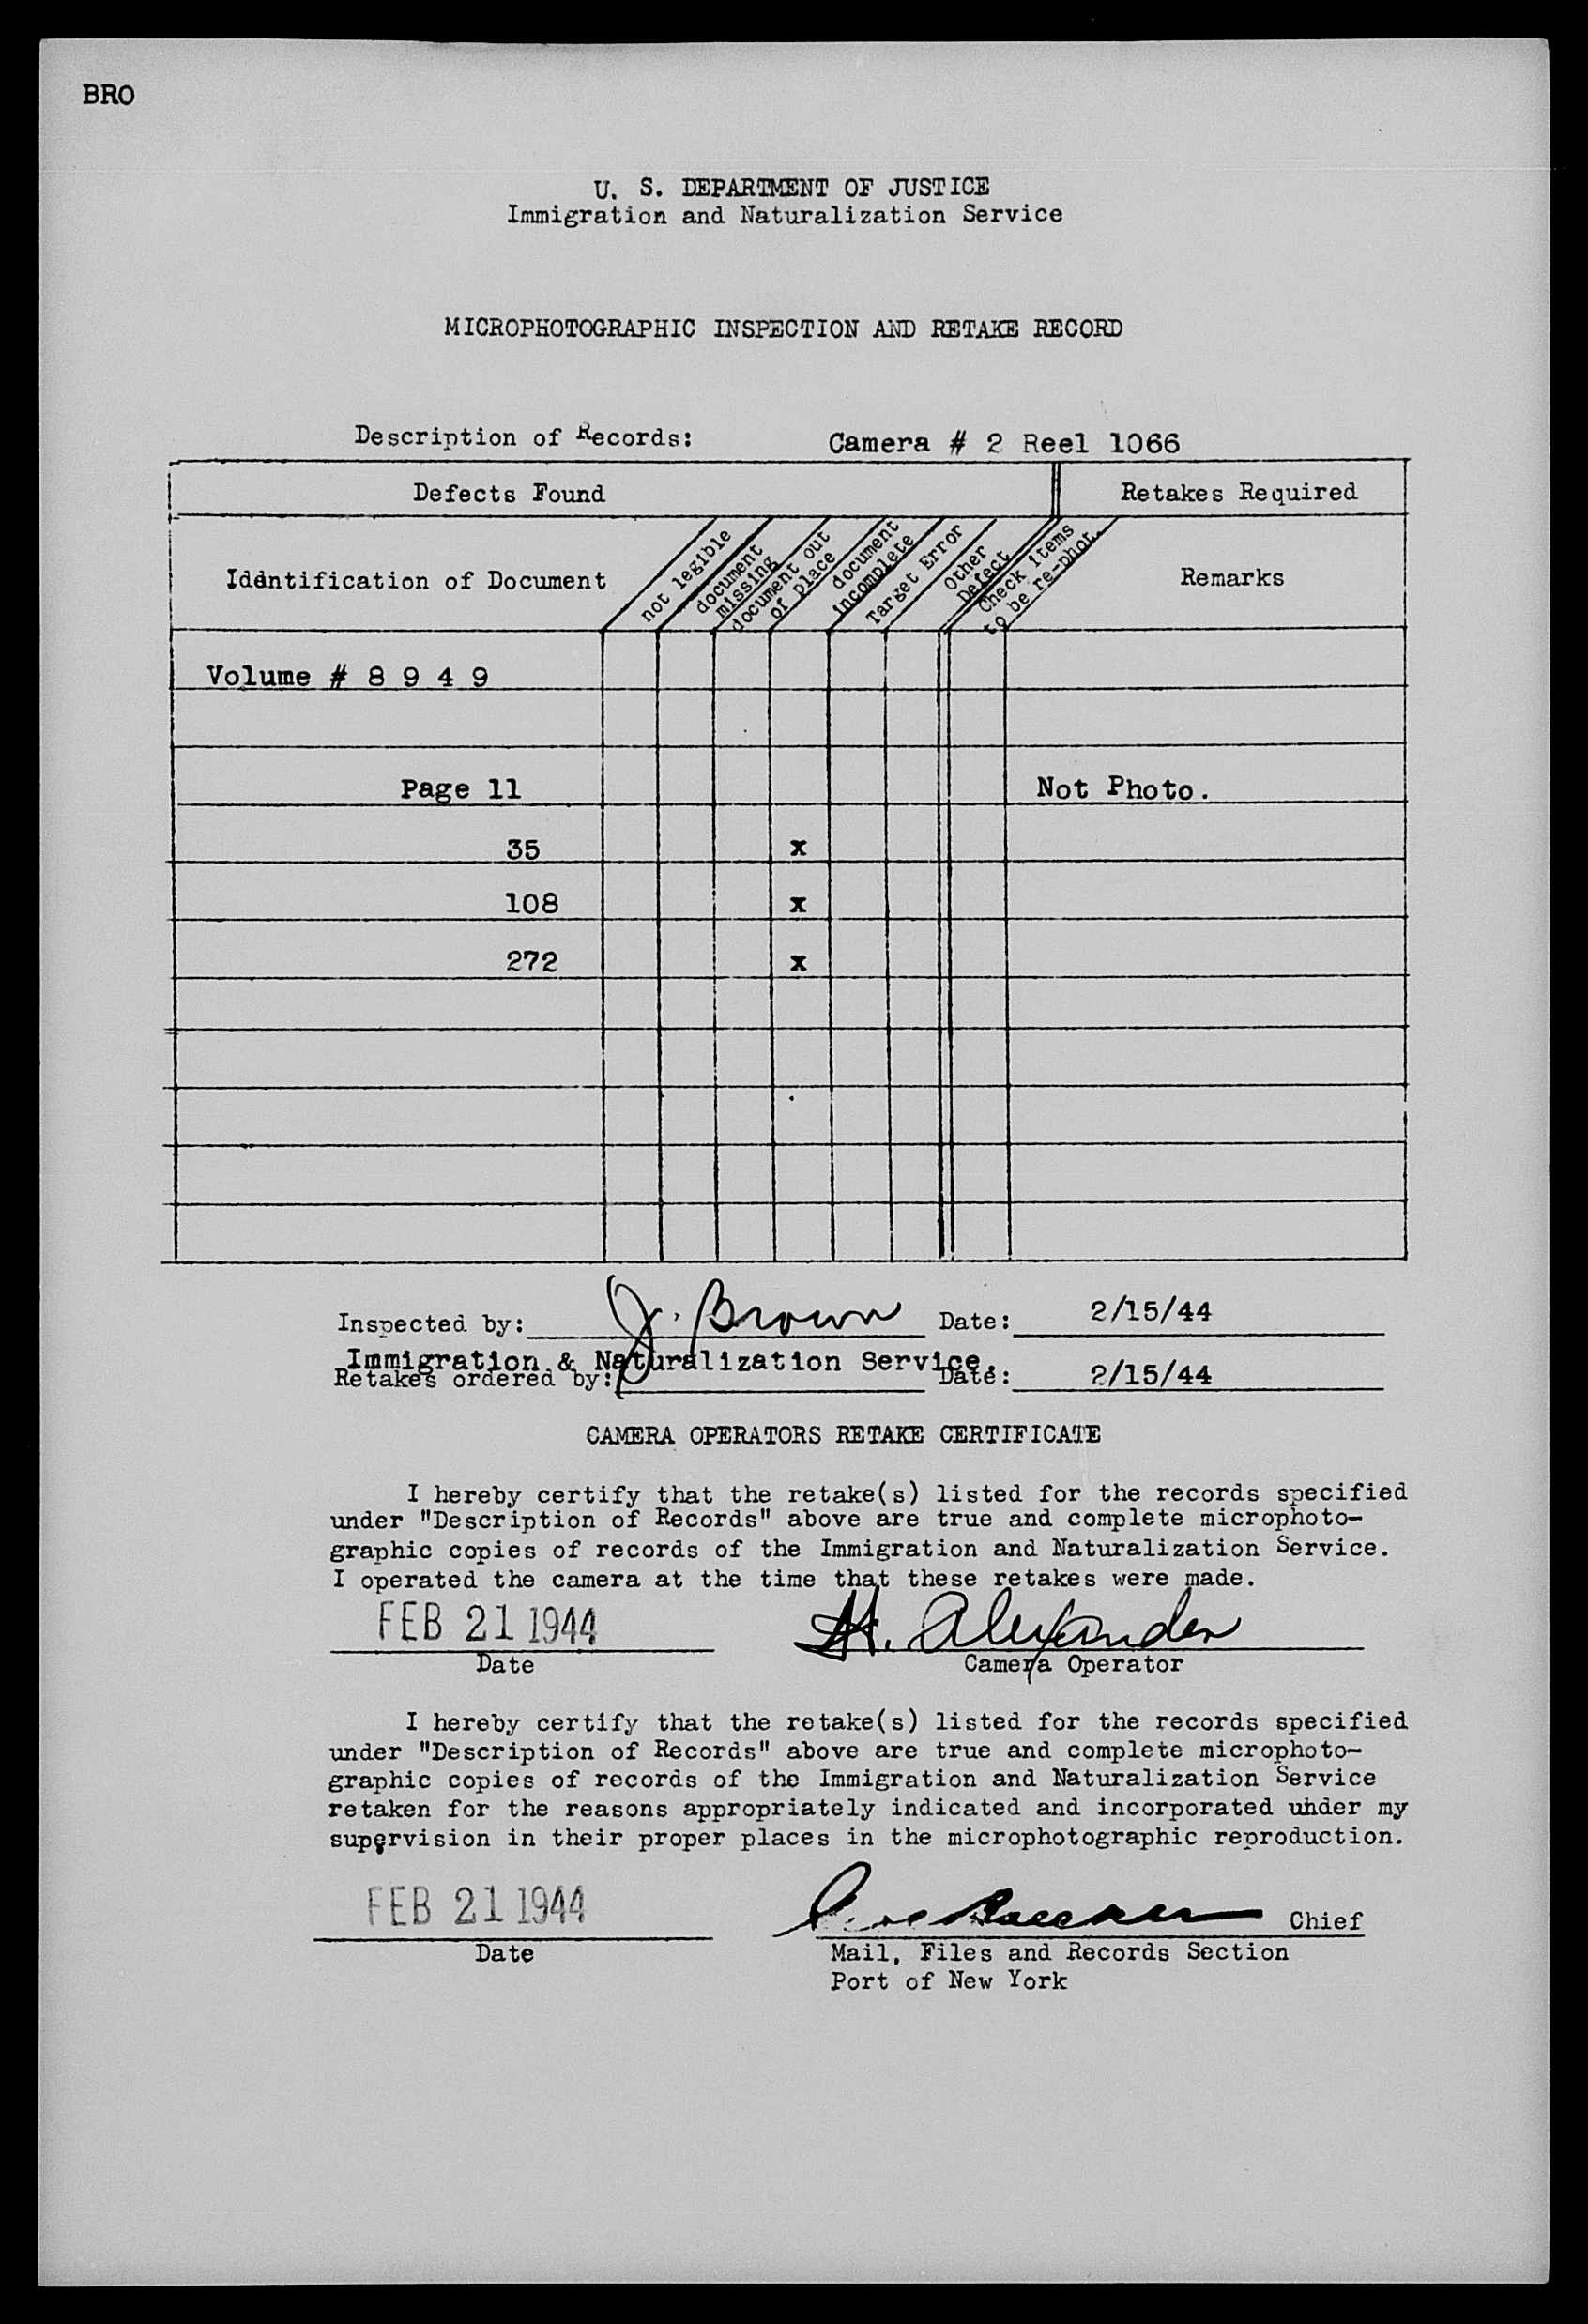 BRO
U. S. DEPARTMENT OF JUSTICE
Immigration and Naturalization Service
MICROPHOTOGRAPHIC INSPECTION AND RETAKE RECORD
Description of Records: Camera # 2 Reel 1066
Defects Found Retakes Required
Idantification of Document not legible document missing document out of place document incomplete Target Error Other Defect Check items to be re-phot. Remarks
Volume # 8 9 4 9
Page 11 Not Photo.
35 x
108 x
272 x
Inspected by: J. Brown Date: 2/15/44
Immigration & Naturalization Service.
Retakes ordered by: Date: 2/15/44
CAMERA OPERATORS RETAKE CERTIFICATE
I hereby certify that the retake(s) listed for the records specified
under "Description of Records" above are true and complete microphoto-
graphic copies of records of the Immigration and Naturalization Service.
I operated the camera at the time that these retakes were made.
FEB 21 1944 H. Alexander
Date Camera Operator
I hereby certify that the retake(s) listed for the records specified
under "Description of Records" above are true and complete microphoto-
graphic copies of records of the Immigration and Naturalization Service
retaken for the reasons appropriately indicated and incorporated under my
supervision in their proper places in the microphotographic reproduction.
FEB 21 1944 Chief
Date Mail, Files and Records Section
Port of New York